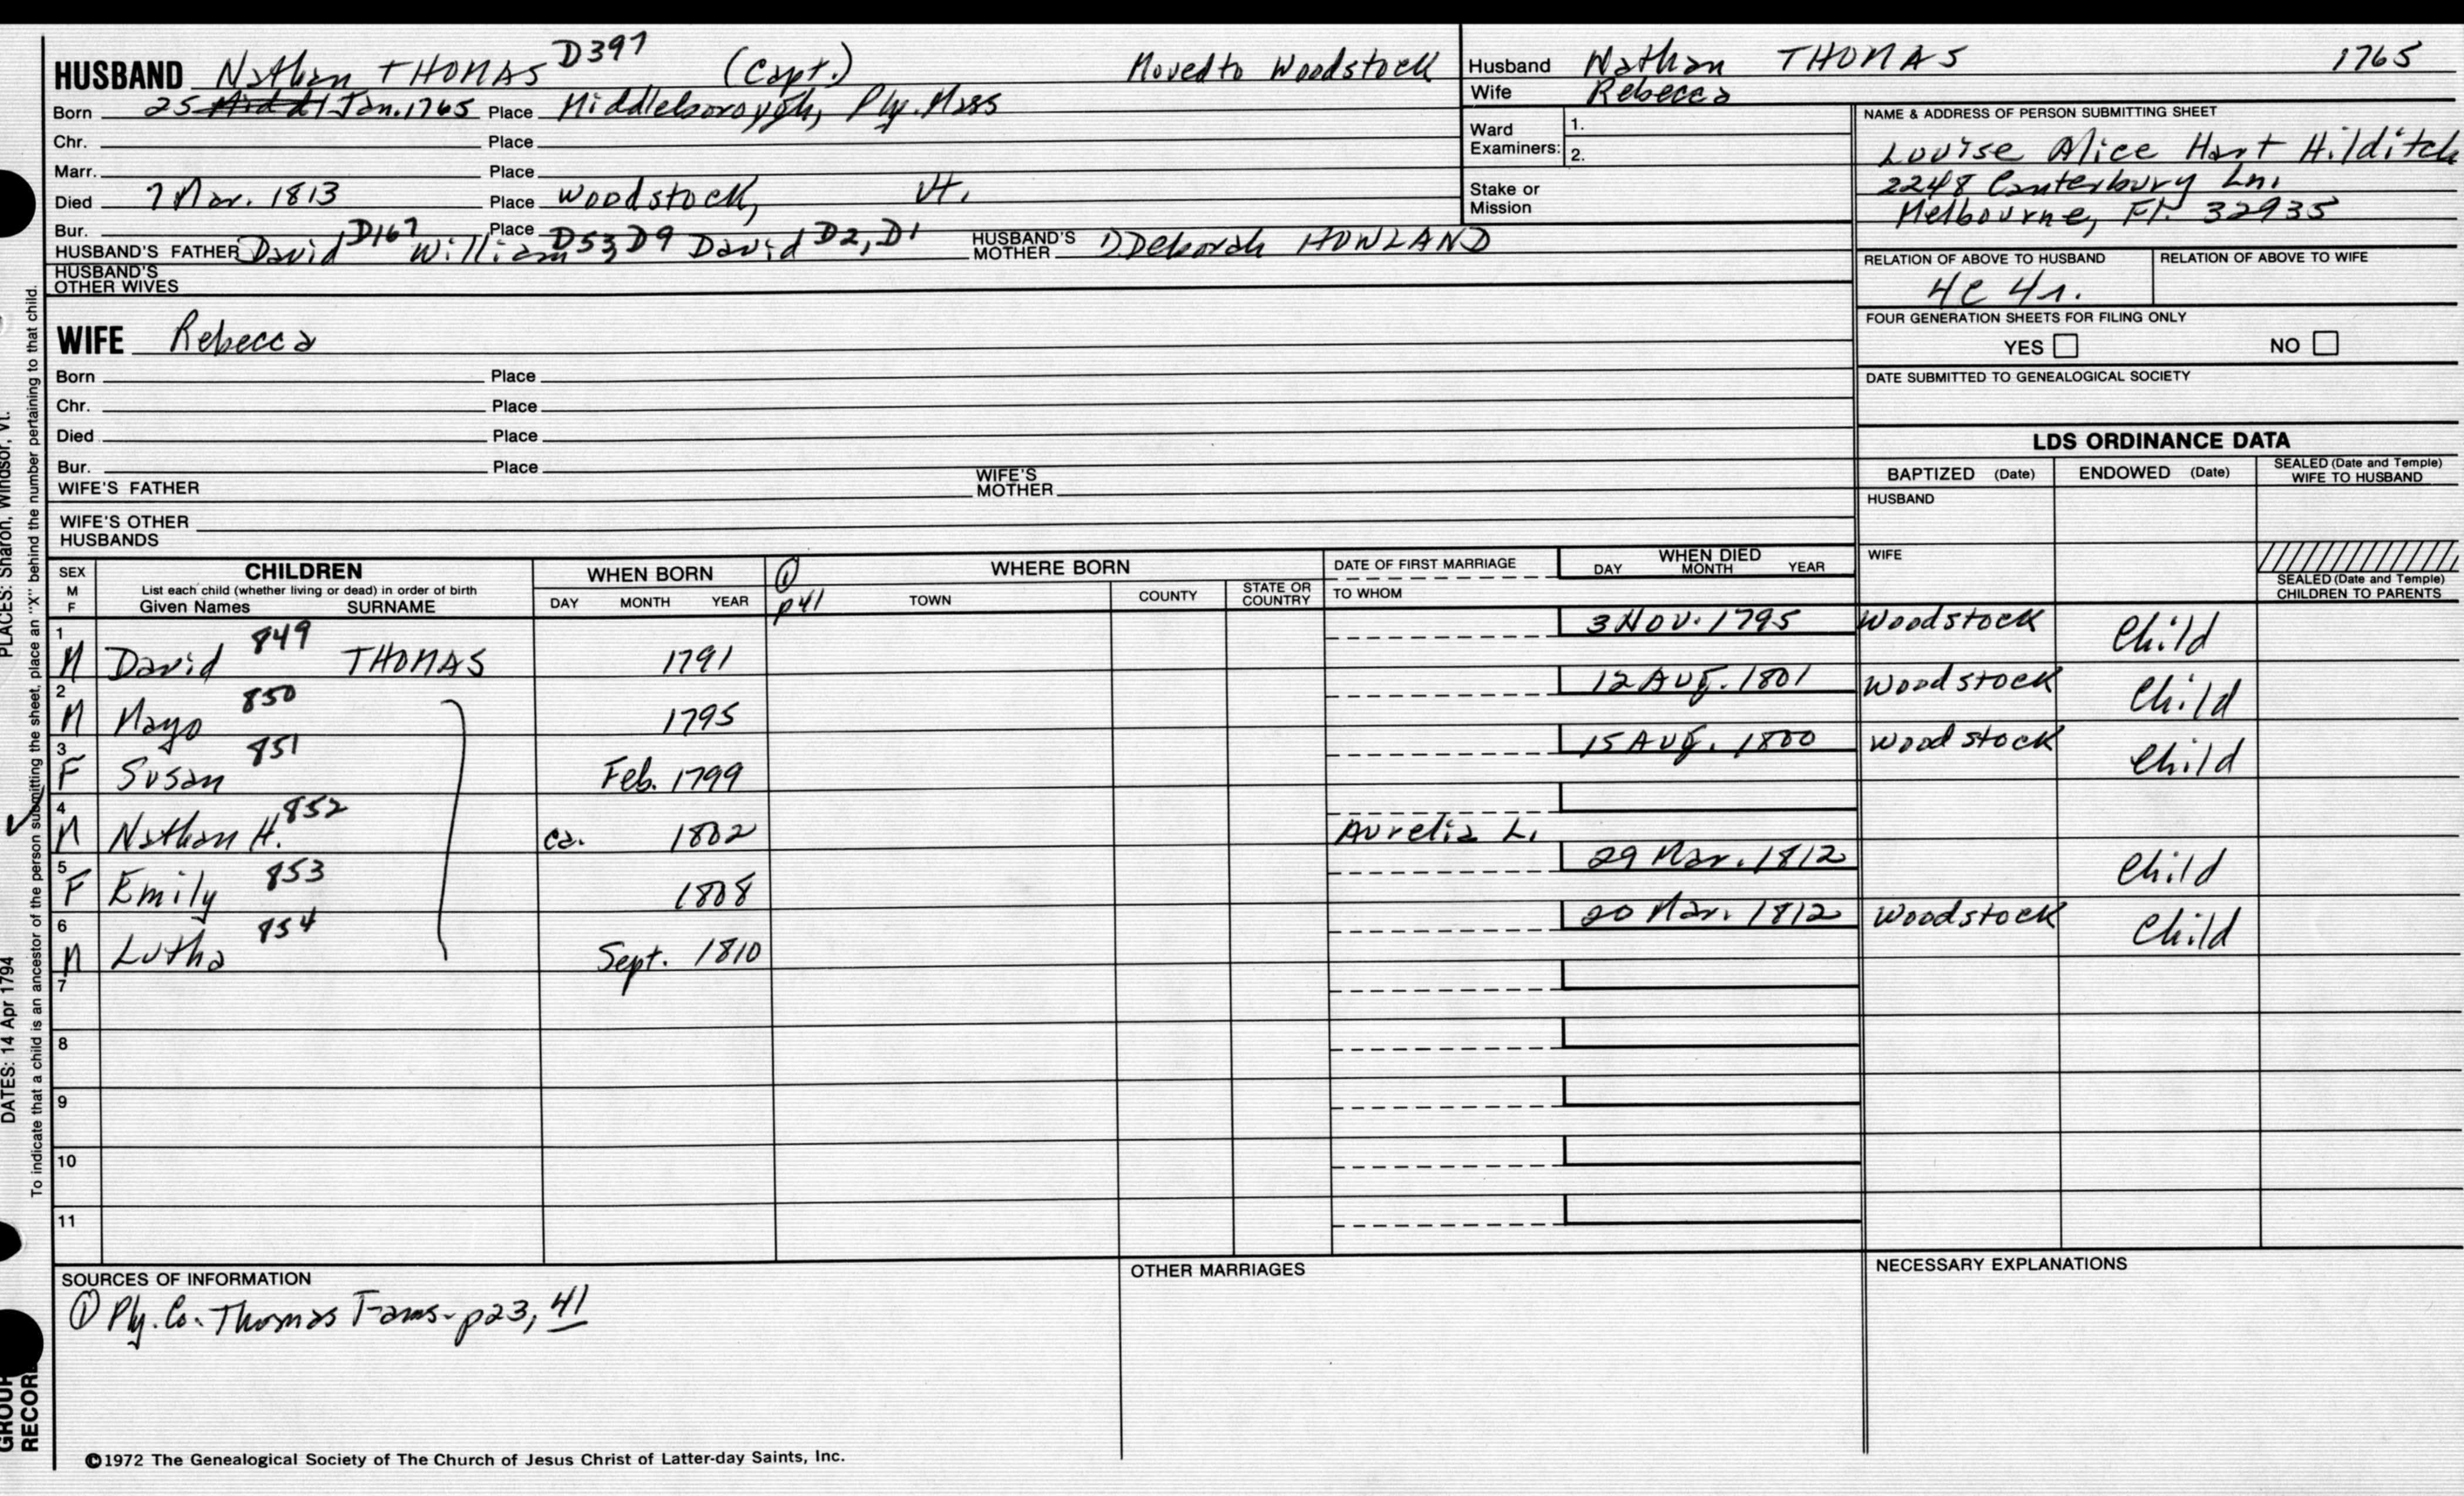 HUSBAND Nathan THOMAS D397 (Capt.) Moved to Woodstock
Born 25 Jan. 1765 Place Middleborough, Ply. Mass
Chr. Place
Marr. Place
Died 7 Mar. 1813 Place Woodstock, Vt.
Bur. Place
HUSBAND'S FATHER David D167 William D53, D9 David D2, D1 HUSBAND'S MOTHER D. Deborah HOWLAND
HUSBAND'S OTHER WIVES
Husband Nathan THOMAS 1765
Wife Rebecca
Ward Examiners: 1.
2.
Stake or Mission
NAME & ADDRESS OF PERSON SUBMITTING SHEET
Louise Alice Hart Hilditch
2248 Canterbury Ln.
Melbourne, Fl. 32935
RELATION OF ABOVE TO HUSBAND RELATION OF ABOVE TO WIFE
4c 4r.
FOUR GENERATION SHEETS FOR FILING ONLY
YES NO
DATE SUBMITTED TO GENEALOGICAL SOCIETY
WIFE Rebecca
Born Place
Chr. Place
Died Place
Bur. Place
WIFE'S FATHER WIFE'S MOTHER
WIFE'S OTHER HUSBANDS
LDS ORDINANCE DATA
BAPTIZED (Date) ENDOWED (Date) SEALED (Date and Temple) WIFE TO HUSBAND
HUSBAND
WIFE
SEALED (Date and Temple) CHILDREN TO PARENTS
SEX M F CHILDREN List each child (whether living or dead) in order of birth Given Names SURNAME
WHEN BORN DAY MONTH YEAR
① p41 WHERE BORN TOWN COUNTY STATE OR COUNTRY
DATE OF FIRST MARRIAGE TO WHOM
WHEN DIED DAY MONTH YEAR
1 M David 849 THOMAS 1791 3 Nov. 1795 Woodstock Child
2 M Mayo 850 1795 12 Aug. 1801 Woodstock Child
3 F Susan 851 Feb. 1799 15 Aug. 1800 Woodstock Child
4 M Nathan H. 852 ca. 1802 Aurelia L.
5 F Emily 853 1808 29 Mar. 1812 Child
6 M Lutha 854 Sept. 1810 20 Mar. 1812 Woodstock Child
7
8
9
10
11
SOURCES OF INFORMATION
① Ply. Co. Thomas Fams - p23, 41
OTHER MARRIAGES
NECESSARY EXPLANATIONS
©1972 The Genealogical Society of The Church of Jesus Christ of Latter-day Saints, Inc.
PLACES: Sharon, Windsor, Vt.
DATES: 14 Apr 1794
To indicate that a child is an ancestor of the person submitting the sheet, place an "X" behind the number pertaining to that child.
GROUP
RECORD